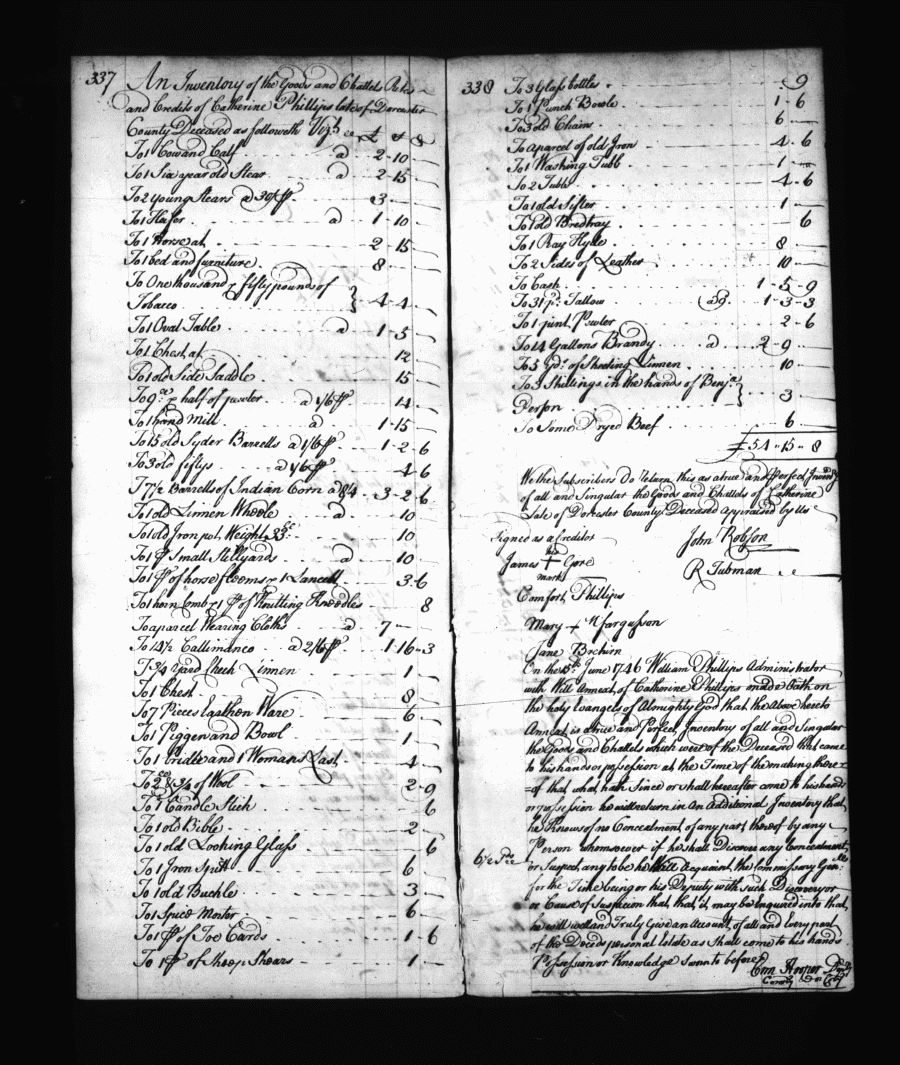 337
An Inventory of the Goods and Chattels
and Credits of Catherine Phillips late of Dorcester
County Deceased as followeth Vizt £ s d
To 1 Cow and Calf a 2 - 10 -
To 1 Six year old Stear a 2 - 15 -
To 2 young Stears a 30/ 3 -
To 1 Hafer a 1 - 10
To 1 Horse at 2 - 15
To 1 bed and furniture 8 -
To One thousand & fifty pound of
Tobacco } 4 - 4 -
To 1 Oval Table a 1 - 5 -
To 1 Chest at 12 -
To 1 old Side Saddle 15 -
To 9 & half of pewter a 1/6 14 -
To 1 hand Mill a 1 - 15 -
To 15 old Syder Barrells a 1/6 1 - 2 - 6
To 3 old a 1/6 4 - 6
T 7 1/2 Barrells of Indian Corn a 8/4 3 - 2 - 6
To 1 old Linnen Wheele a 10 -
To 1 old Iron pot Weight 33 10
To 1 pr Small Stillyards a 10 -
To 1 pr of horse fleems & 1 Lancett 3 - 6
To 1 horn Comb & 1 pr of Knitting Needles 8
To a parcel Wearing Cloths a 7 -
To 14 1/2 Callimanco a 2/6 1 - 16 - 3
T 3/4 Yard Check Linnen 1 -
To 1 Chest 8 -
To 7 Pieces Earthen Ware 6 -
To 1 Piggen and Bowl 1 -
To 1 bridle and 1 Womans Last 4 -
To 2 & 3/4 of Wool 2 - 9
To 1 Candle Stick 6
To 1 old Bible 2 -
To 1 old Looking Glass 6
To 1 Iron Spitt 6
To 1 old Buckle 3 -
To 1 Spice Morter 6 -
To 1 pr of Toe Cards 1 - 6
To 1 pr of Sheep Shears 1 -
338
To 3 Glass bottles 9
To 1 Punch Bowle 1 - 6
To 3 old Chairs 6 -
To a parcel of old Iron 4 - 6
To 1 Washing Tubb 1 -
To 2 Tubbs 4 - 6
To 1 old Sifter 1 -
To 1 old Bredtray 6
To 1 Raw Hyde 8 -
To 2 Sides of Leather 10 -
To Cash 1 - 5 - 9
To 31 pd Tallow a 9 1 - 3 - 3
To 1 pint Pewter 2 - 6
To 14 Gallons Brandy a 2 - 9 -
To 5 Yds of Sheeting Linnen 10 -
To 3 Shillings in the hands of Benja
Person } 3 -
To Some Dryed Beef 6 -
£ 54 - 15 - 8
We the Subscribers Do Return this as a true and Perfect Inventory
of all and Singular the Goods and Chattels of Catherine
late of Dorcester County Deceased appraised by Us
Signed as a Creditor John Robson
his
James + Gore R Tubman
mark
Comfort Phillips
Mary + Margusson
Jane
On the 15th June 1746 William Phillips Administrator
with Will Annext of Catherine Phillips made Oath on
the holy Evangels of Almighty God that the Above hereto
Annext is a true and Perfect Inventory of all and Singular
the Goods and Chattels which were of the Deceased that came
to his hands or possession at the Time of the making there
of that what hath Since or shall hereafter come to his hands
or possession he will return in An Additional Inventory that
he Knows of no Concealment of any part thereof by any
Person whomsoever if he shall Discover any Concealment
or Suspect any to be he Will Acquaint the Commissary Genll
for the Time being or his Deputy with such Discovery or
or Cause of Suspicion that that it may be Enquired into that
he will well and Truly Give an Account of all and Every part
of the Deceds personal Estate as Shall come to his hands
Possession or Knowledge Sworn to before
Hooper